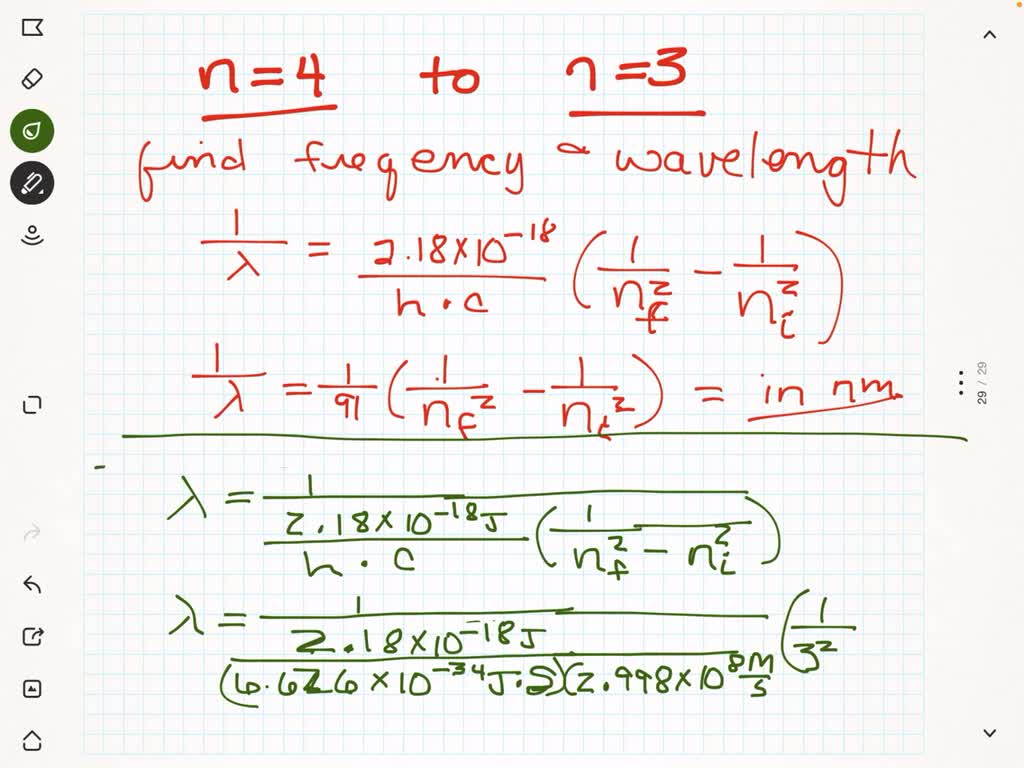 n=4 to n=3
find frequency ~ wavelength
1/λ = 2.18×10^-18/h·c (1/n_f^2 - 1/n_i^2)
1/λ = 1/91 (1/n_f^2 - 1/n_i^2) = in nm
λ = 1/2.18×10^-18 J/h·c (1/n_f^2 - n_i^2)
λ = 1/2.18×10^-18 J/(6.626×10^-34 J·S)(2.998×10^8 M/s (1/3^2
29 / 29